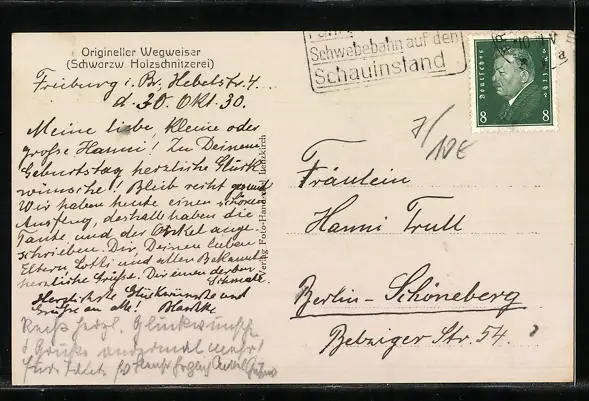 Origineller Wegweiser
(Schwarzw. Holzschnitzerei)
Freiburg i. Br. Hebelstr. 4.
d. 30. Okt. 30.
Meine liebe, kleine oder
große Hanni! Zu Deinem
Geburtstag herzliche Glück
wünsche! Bleib recht gesund
Wir haben heute einen schönen
Ausflug, deshalb haben die
Tante und der Onkel ange
schrieben. Dir, Deinen lieben
Eltern, Lotti und allen Bekannten
herzliche Grüße. Dir einen derben
Schmatz.
Herzlichste Glückwünsche und
Grüße an alle!
herzl. Glückwünsche
Verlag Foto-Handlung Lenzkirch
Schwebebahn auf den
Schauinsland
Deutsches Reich
8 8
7/
10€
Fräulein
Hanni Trull
Berlin-Schöneberg
Belziger Str. 54.